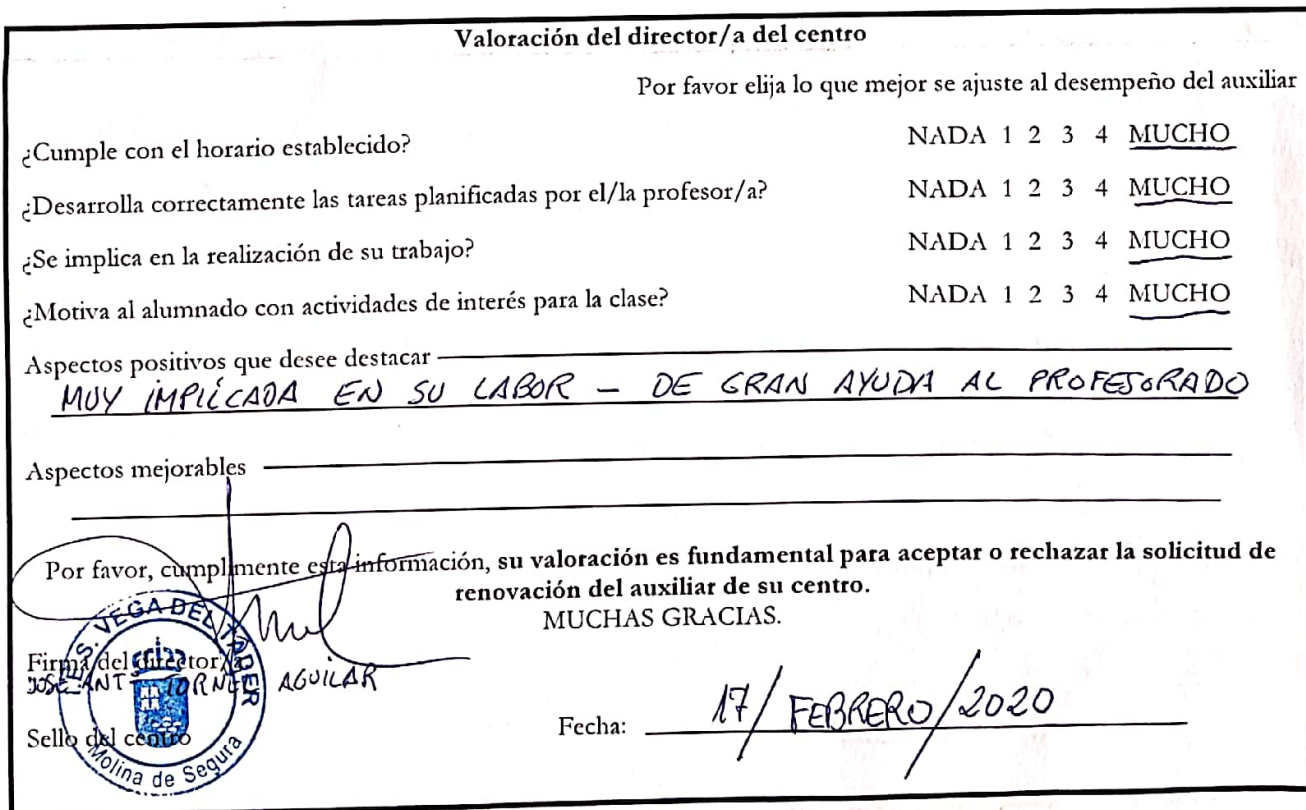 Valoración del director/a del centro
Por favor elija lo que mejor se ajuste al desempeño del auxiliar
¿Cumple con el horario establecido? NADA 1 2 3 4 MUCHO
¿Desarrolla correctamente las tareas planificadas por el/la profesor/a? NADA 1 2 3 4 MUCHO
¿Se implica en la realización de su trabajo? NADA 1 2 3 4 MUCHO
¿Motiva al alumnado con actividades de interés para la clase? NADA 1 2 3 4 MUCHO
Aspectos positivos que desee destacar
MUY IMPLICADA EN SU LABOR — DE GRAN AYUDA AL PROFESORADO
Aspectos mejorables
Por favor, cumplimente esta información, su valoración es fundamental para aceptar o rechazar la solicitud de
renovación del auxiliar de su centro.
MUCHAS GRACIAS.
I.E.S. VEGA DEL TÁDER
Firma del director/a
JOSE ANT. AGUILAR
Fecha: 17/FEBRERO/2020
Sello del centro
Molina de Segura